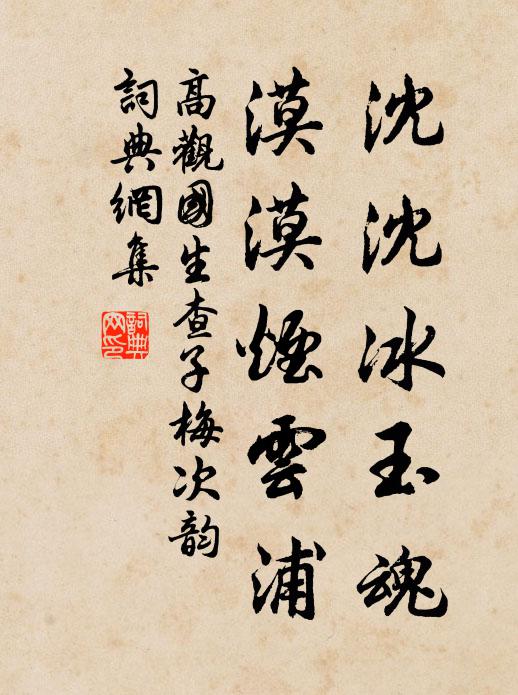 沈沈冰玉魂
漠漠煙雲浦
高觀國生查子梅次韵
詞典網集
詞典
网印